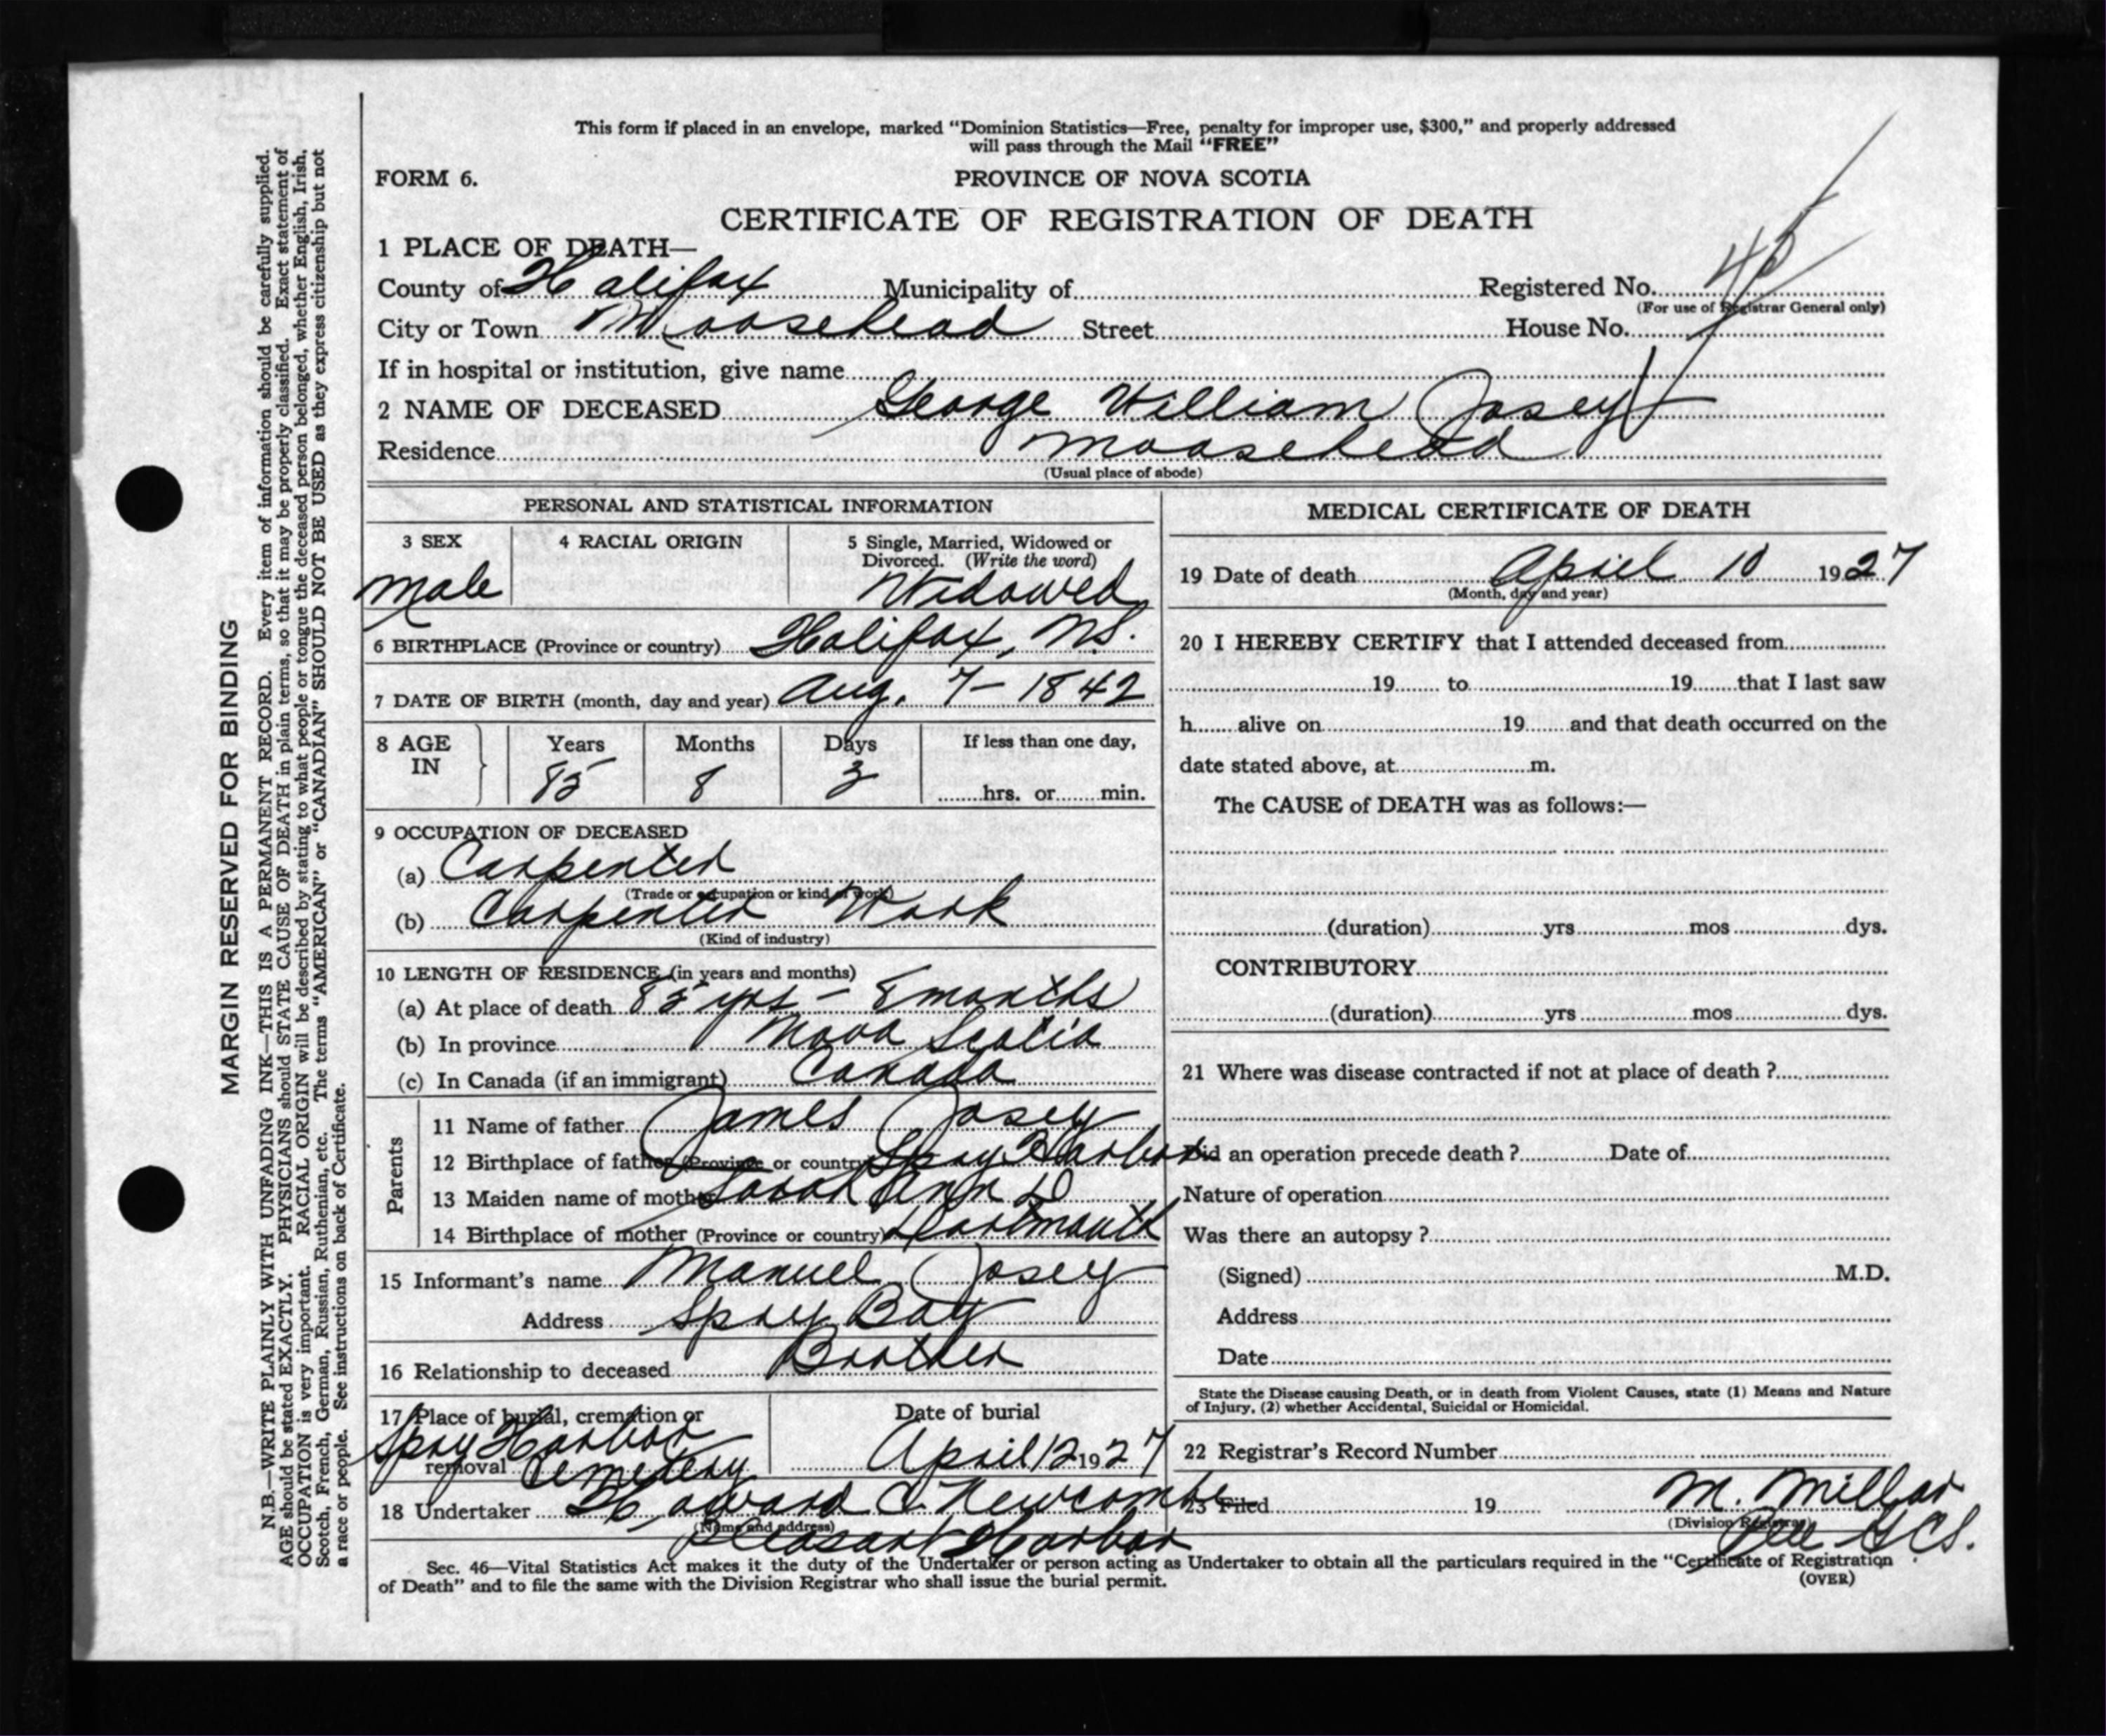 This form if placed in an envelope, marked "Dominion Statistics—Free, penalty for improper use, $300," and properly addressed
will pass through the Mail "FREE"
FORM 6. PROVINCE OF NOVA SCOTIA
CERTIFICATE OF REGISTRATION OF DEATH
1 PLACE OF DEATH—
County of Halifax Municipality of Registered No.
(For use of Registrar General only)
City or Town Moosehead Street House No.
If in hospital or institution, give name
2 NAME OF DECEASED George William Josey
Residence Moosehead
(Usual place of abode)
PERSONAL AND STATISTICAL INFORMATION
3 SEX 4 RACIAL ORIGIN 5 Single, Married, Widowed or
Divorced. (Write the word)
Male Widowed
6 BIRTHPLACE (Province or country) Halifax, N.S.
7 DATE OF BIRTH (month, day and year) Aug. 7 - 1842
8 AGE IN Years Months Days If less than one day,
85 8 3 hrs. or min.
9 OCCUPATION OF DECEASED
(a) Carpenter
(Trade or occupation or kind of work)
(b) Carpenter Work
(Kind of industry)
10 LENGTH OF RESIDENCE (in years and months)
(a) At place of death 85 yrs - 8 months
(b) In province Nova Scotia
(c) In Canada (if an immigrant) Canada
Parents
11 Name of father James Josey
12 Birthplace of father (Province or country) Spry Harbor
13 Maiden name of mother Sarah Ann D
14 Birthplace of mother (Province or country) Dartmouth
15 Informant's name Manuel Josey
Address Spry Bay
16 Relationship to deceased Brother
17 Place of burial, cremation or Date of burial
Spry Harbor
removal Cemetery April 12 1927
18 Undertaker Howard C. Newcombe
(Name and address)
Pleasant Harbor
MEDICAL CERTIFICATE OF DEATH
19 Date of death April 10 1927
(Month, day and year)
20 I HEREBY CERTIFY that I attended deceased from
19 to 19 that I last saw
h alive on 19 and that death occurred on the
date stated above, at m.
The CAUSE of DEATH was as follows:—
(duration) yrs mos dys.
CONTRIBUTORY
(duration) yrs mos dys.
21 Where was disease contracted if not at place of death ?
Did an operation precede death ? Date of
Nature of operation
Was there an autopsy ?
(Signed) M.D.
Address
Date
State the Disease causing Death, or in death from Violent Causes, state (1) Means and Nature
of Injury, (2) whether Accidental, Suicidal or Homicidal.
22 Registrar's Record Number
23 Filed 19 M. Millar
(Division Registrar)
Sec. 46—Vital Statistics Act makes it the duty of the Undertaker or person acting as Undertaker to obtain all the particulars required in the "Certificate of Registration
of Death" and to file the same with the Division Registrar who shall issue the burial permit. (OVER)
MARGIN RESERVED FOR BINDING
N.B.—WRITE PLAINLY WITH UNFADING INK—THIS IS A PERMANENT RECORD. Every item of information should be carefully supplied.
AGE should be stated EXACTLY. PHYSICIANS should STATE CAUSE OF DEATH in plain terms, so that it may be properly classified. Exact statement of
OCCUPATION is very important. RACIAL ORIGIN will be described by stating to what people or tongue the deceased person belonged, whether English, Irish,
Scotch, French, German, Russian, Ruthenian, etc. The terms "AMERICAN" or "CANADIAN" SHOULD NOT BE USED as they express citizenship but not
a race or people. See instructions on back of Certificate.